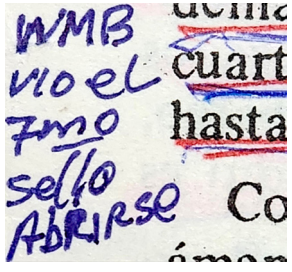 WMB
vio el
7mo
sello
ABRIRSE
cuart
hasta
Co